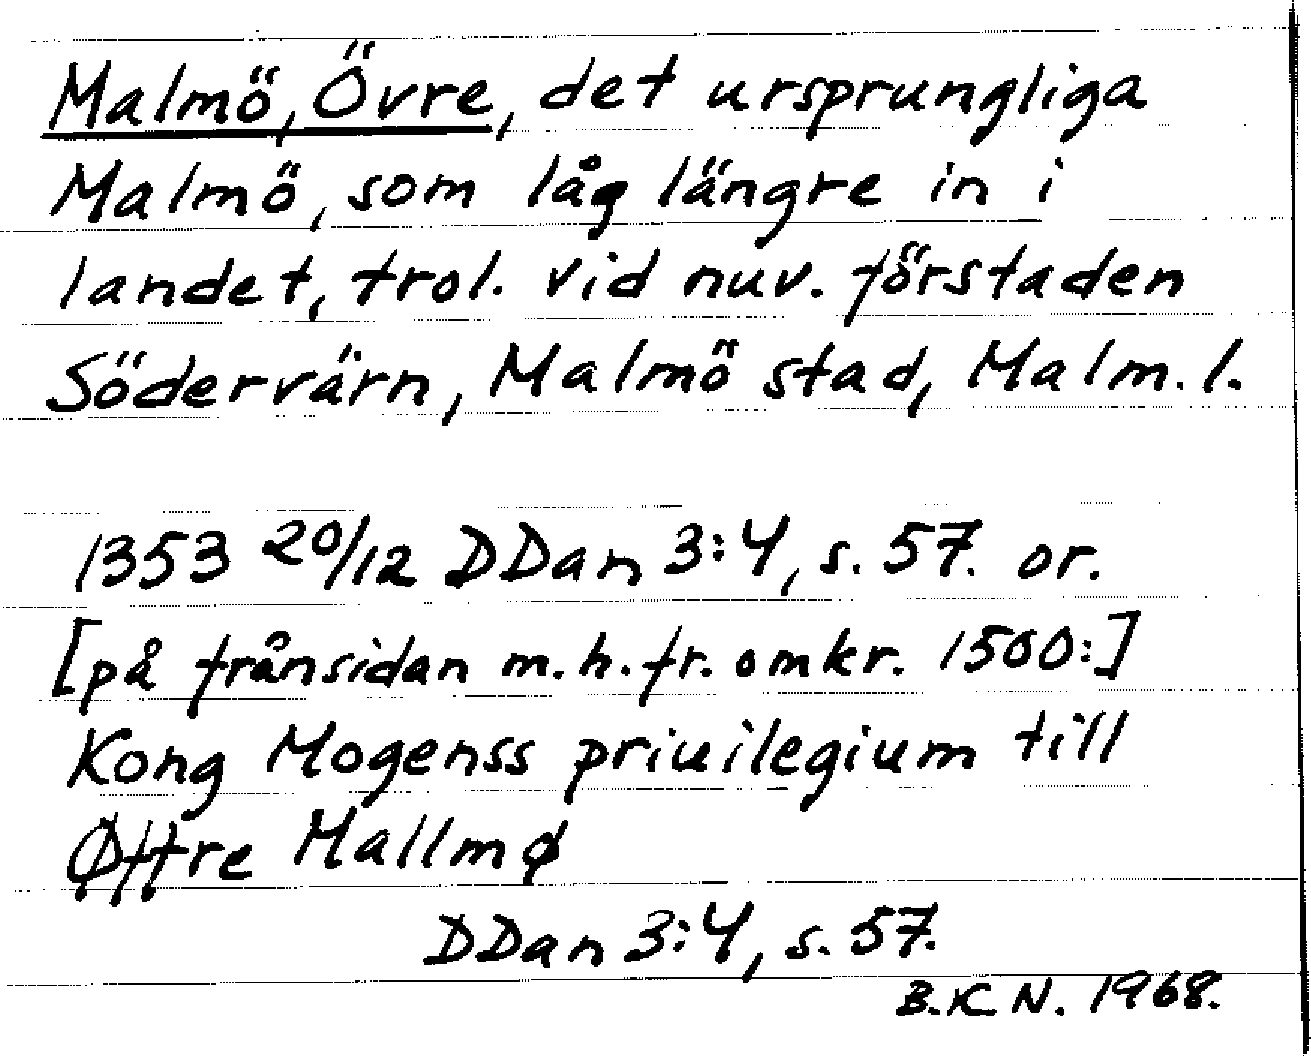 Malmö, Övre, det ursprungliga
Malmö, som låg längre in i
landet, trol. vid nuv. förstaden
Södervärn, Malmö stad, Malm. l.
1353 20/12 DDan 3:4, s. 57. or.
[på frånsidan m.h. fr. omkr. 1500:]
Kong Mogenss priuilegium till
Øffre Mallmø
DDan 3:4, s. 57.
B.K.N. 1968.